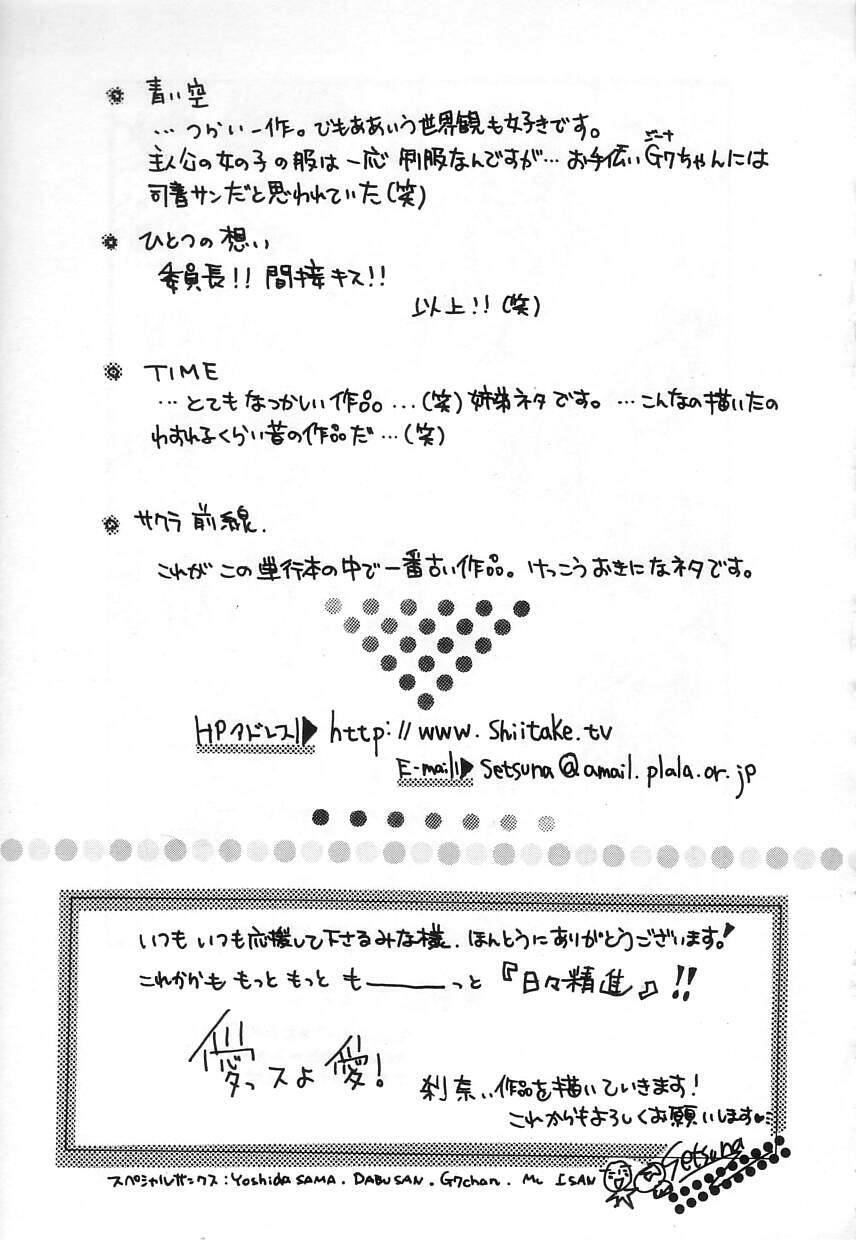 青い空
… つらい一作。でもああいう世界観も好きです。
ジーナ
主人公の女の子の服は一応 制服なんですが… お手伝い G7ちゃんには
司書サンだと思われていた(笑)
ひとつの想い
委員長!! 間接キス!!
以上!! (笑)
TIME
… とても なつかしい作品 …(笑) 姉弟ネタです。 … こんなの描いたの
わすれるくらい昔の作品だ …(笑)
サクラ 前線.
これが この 単行本の中で 一番古い作品。 けっこう おきに なネタです。
HPアドレス http://www.shiitake.tv
E-mail setsuna@amail.plala.or.jp
いつも いつも応援して下さるみな様. ほんとうにありがとうございます。!
これからも もっと もっと も――っと 『日々精進』!!
愛っスよ 愛!
刹奈、、作品を描いていきます!
これからもよろしくお願いします♥
Setsuna
スペシャルサンクス:Yoshida SAMA. DABU SAN. G7chan. Mc ISAN